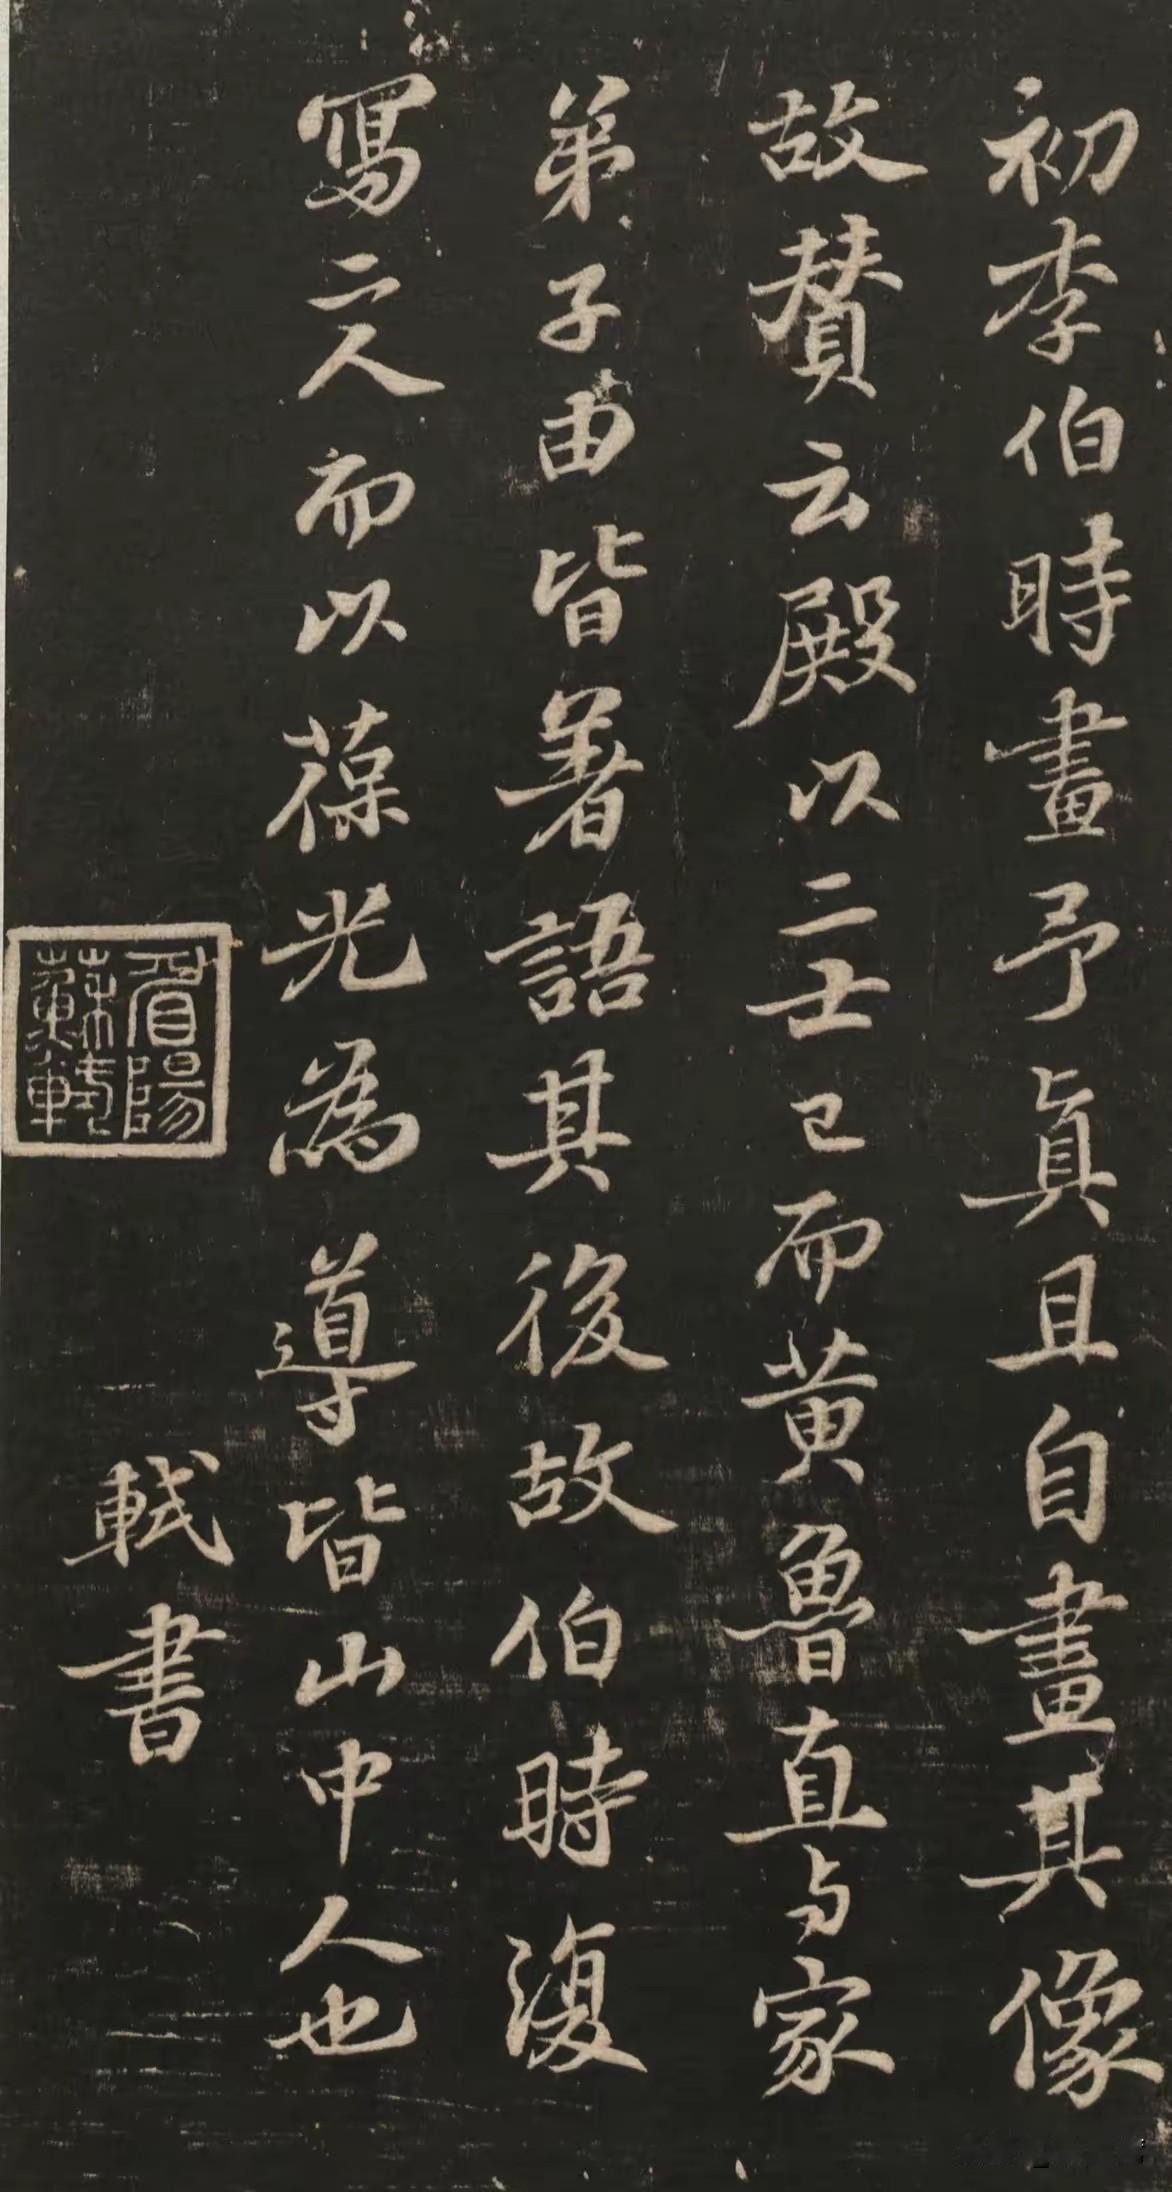 初李伯時畫予真且自畫其像
故賛云殿以二士已而黄魯直与家
弟子由皆著語其後故伯時復
寫二人而以葆光為導皆山中人也
軾書
眉陽
蘇軾